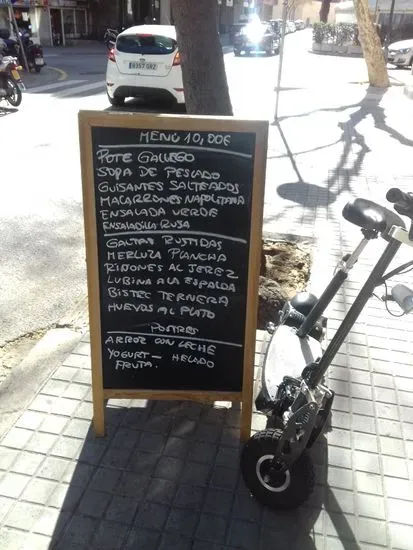 MENÚ 10,00€
POTE GALLEGO
SOPA DE PESCADO
GUISANTES SALTEADOS
MACARRONES NAPOLITANA
ENSALADA VERDE
ENSALADILLA RUSA
GALTAS RUSTIDAS
MERLUZA PLANCHA
RIÑONES AL JEREZ
LUBINA A LA ESPALDA
BISTEC TERNERA
HUEVOS AL PLATO
POSTRES
ARROZ CON LECHE
YOGURT - HELADO
FRUTA.